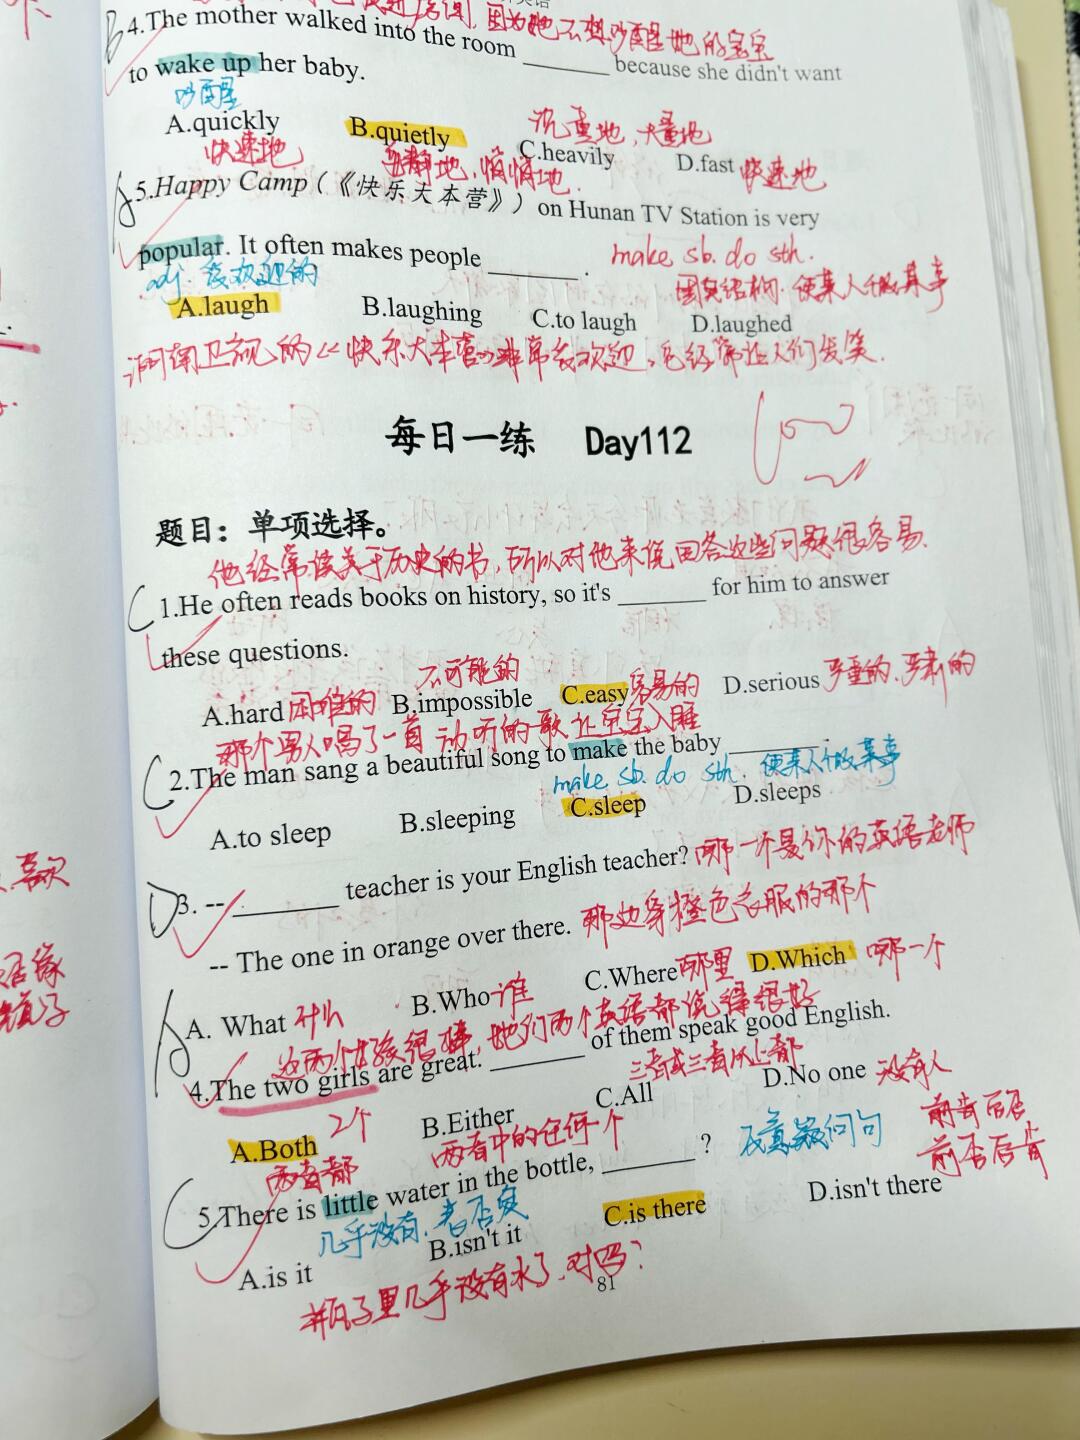 因为她不想吵醒她的宝宝
B 4.The mother walked into the room ______ because she didn't want
to wake up her baby.
吵醒
A.quickly B.quietly C.heavily D.fast
快速地 安静地,悄悄地. 沉重地,大量地 快速地
A 5.Happy Camp(《快乐大本营》)on Hunan TV Station is very
popular. It often makes people ______ . make sb. do sth.
adj 受欢迎的 固定结构. 使某人做某事
A.laugh B.laughing C.to laugh D.laughed
湖南卫视的《快乐大本营》非常受欢迎,它经常让人们发笑.
每日一练 Day112
题目：单项选择。
他经常读关于历史的书,所以对他来说回答这些问题很容易.
C 1.He often reads books on history, so it's ______ for him to answer
these questions.
A.hard 困难的 B.impossible 不可能的 C.easy 容易的 D.serious 严重的、严肃的
那个男人唱了一首动听的歌让宝宝入睡
C 2.The man sang a beautiful song to make the baby ______.
make sb. do sth. 使某人做某事
A.to sleep B.sleeping C.sleep D.sleeps
D 3. -- ______ teacher is your English teacher? 哪一个是你的英语老师
-- The one in orange over there. 那边穿橙色衣服的那个
A. What 什么 B.Who 谁 C.Where 哪里 D.Which 哪一个
这两个女孩很棒,她们两个英语都说得很好
A 4.The two girls are great. ______ of them speak good English.
2个 三者或三者以上都 没有人
A.Both B.Either C.All D.No one
两者都 两者中的任何一个
C 5.There is little water in the bottle, ______ ? 反意疑问句 前肯后否
前否后肯
几乎没有.表否定
A.is it B.isn't it C.is there D.isn't there
瓶子里几乎没有水了.对吗?
81